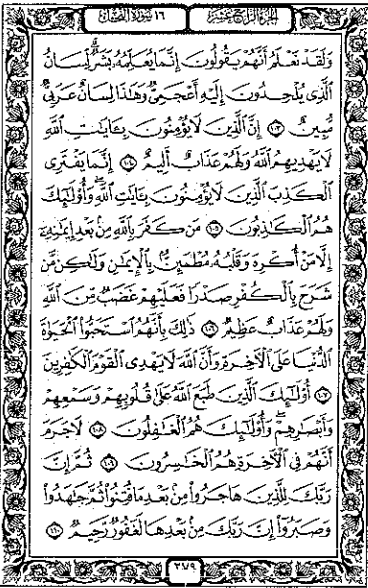 الجزء الرابع عشر
١٦ سورة النحل
وَلَقَدْ نَعْلَمُ أَنَّهُمْ يَقُولُونَ إِنَّمَا يُعَلِّمُهُۥ بَشَرٌ ۗ لِّسَانُ
ٱلَّذِى يُلْحِدُونَ إِلَيْهِ أَعْجَمِىٌّ وَهَـٰذَا لِسَانٌ عَرَبِىٌّ
مُّبِينٌ ١٠٣ إِنَّ ٱلَّذِينَ لَا يُؤْمِنُونَ بِـَٔايَـٰتِ ٱللَّهِ
لَا يَهْدِيهِمُ ٱللَّهُ وَلَهُمْ عَذَابٌ أَلِيمٌ ١٠٤ إِنَّمَا يَفْتَرِى
ٱلْكَذِبَ ٱلَّذِينَ لَا يُؤْمِنُونَ بِـَٔايَـٰتِ ٱللَّهِ ۖ وَأُو۟لَـٰٓئِكَ
هُمُ ٱلْكَـٰذِبُونَ ١٠٥ مَن كَفَرَ بِٱللَّهِ مِنۢ بَعْدِ إِيمَـٰنِهِۦٓ
إِلَّا مَنْ أُكْرِهَ وَقَلْبُهُۥ مُطْمَئِنٌّۢ بِٱلْإِيمَـٰنِ وَلَـٰكِن مَّن
شَرَحَ بِٱلْكُفْرِ صَدْرًا فَعَلَيْهِمْ غَضَبٌ مِّنَ ٱللَّهِ
وَلَهُمْ عَذَابٌ عَظِيمٌ ١٠٦ ذَٰلِكَ بِأَنَّهُمُ ٱسْتَحَبُّوا۟ ٱلْحَيَوٰةَ
ٱلدُّنْيَا عَلَى ٱلْـَٔاخِرَةِ وَأَنَّ ٱللَّهَ لَا يَهْدِى ٱلْقَوْمَ ٱلْكَـٰفِرِينَ
١٠٧ أُو۟لَـٰٓئِكَ ٱلَّذِينَ طَبَعَ ٱللَّهُ عَلَىٰ قُلُوبِهِمْ وَسَمْعِهِمْ
وَأَبْصَـٰرِهِمْ ۖ وَأُو۟لَـٰٓئِكَ هُمُ ٱلْغَـٰفِلُونَ ١٠٨ لَا جَرَمَ
أَنَّهُمْ فِى ٱلْـَٔاخِرَةِ هُمُ ٱلْخَـٰسِرُونَ ١٠٩ ثُمَّ إِنَّ
رَبَّكَ لِلَّذِينَ هَاجَرُوا۟ مِنۢ بَعْدِ مَا فُتِنُوا۟ ثُمَّ جَـٰهَدُوا۟
وَصَبَرُوٓا۟ إِنَّ رَبَّكَ مِنۢ بَعْدِهَا لَغَفُورٌ رَّحِيمٌ ١١٠
٢٧٩